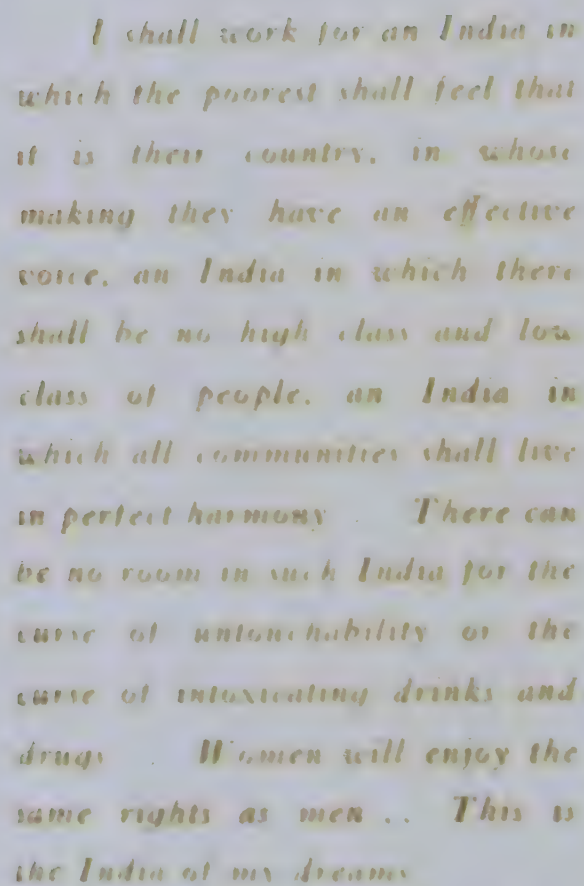 I shall work for an India in
which the poorest shall feel that
it is their country, in whose
making they have an effective
voice, an India in which there
shall be no high class and low
class of people, an India in
which all communities shall live
in perfect harmony There can
be no room in such India for the
curse of untouchability or the
curse of intoxicating drinks and
drugs Women will enjoy the
same rights as men .. This is
the India of my dreams